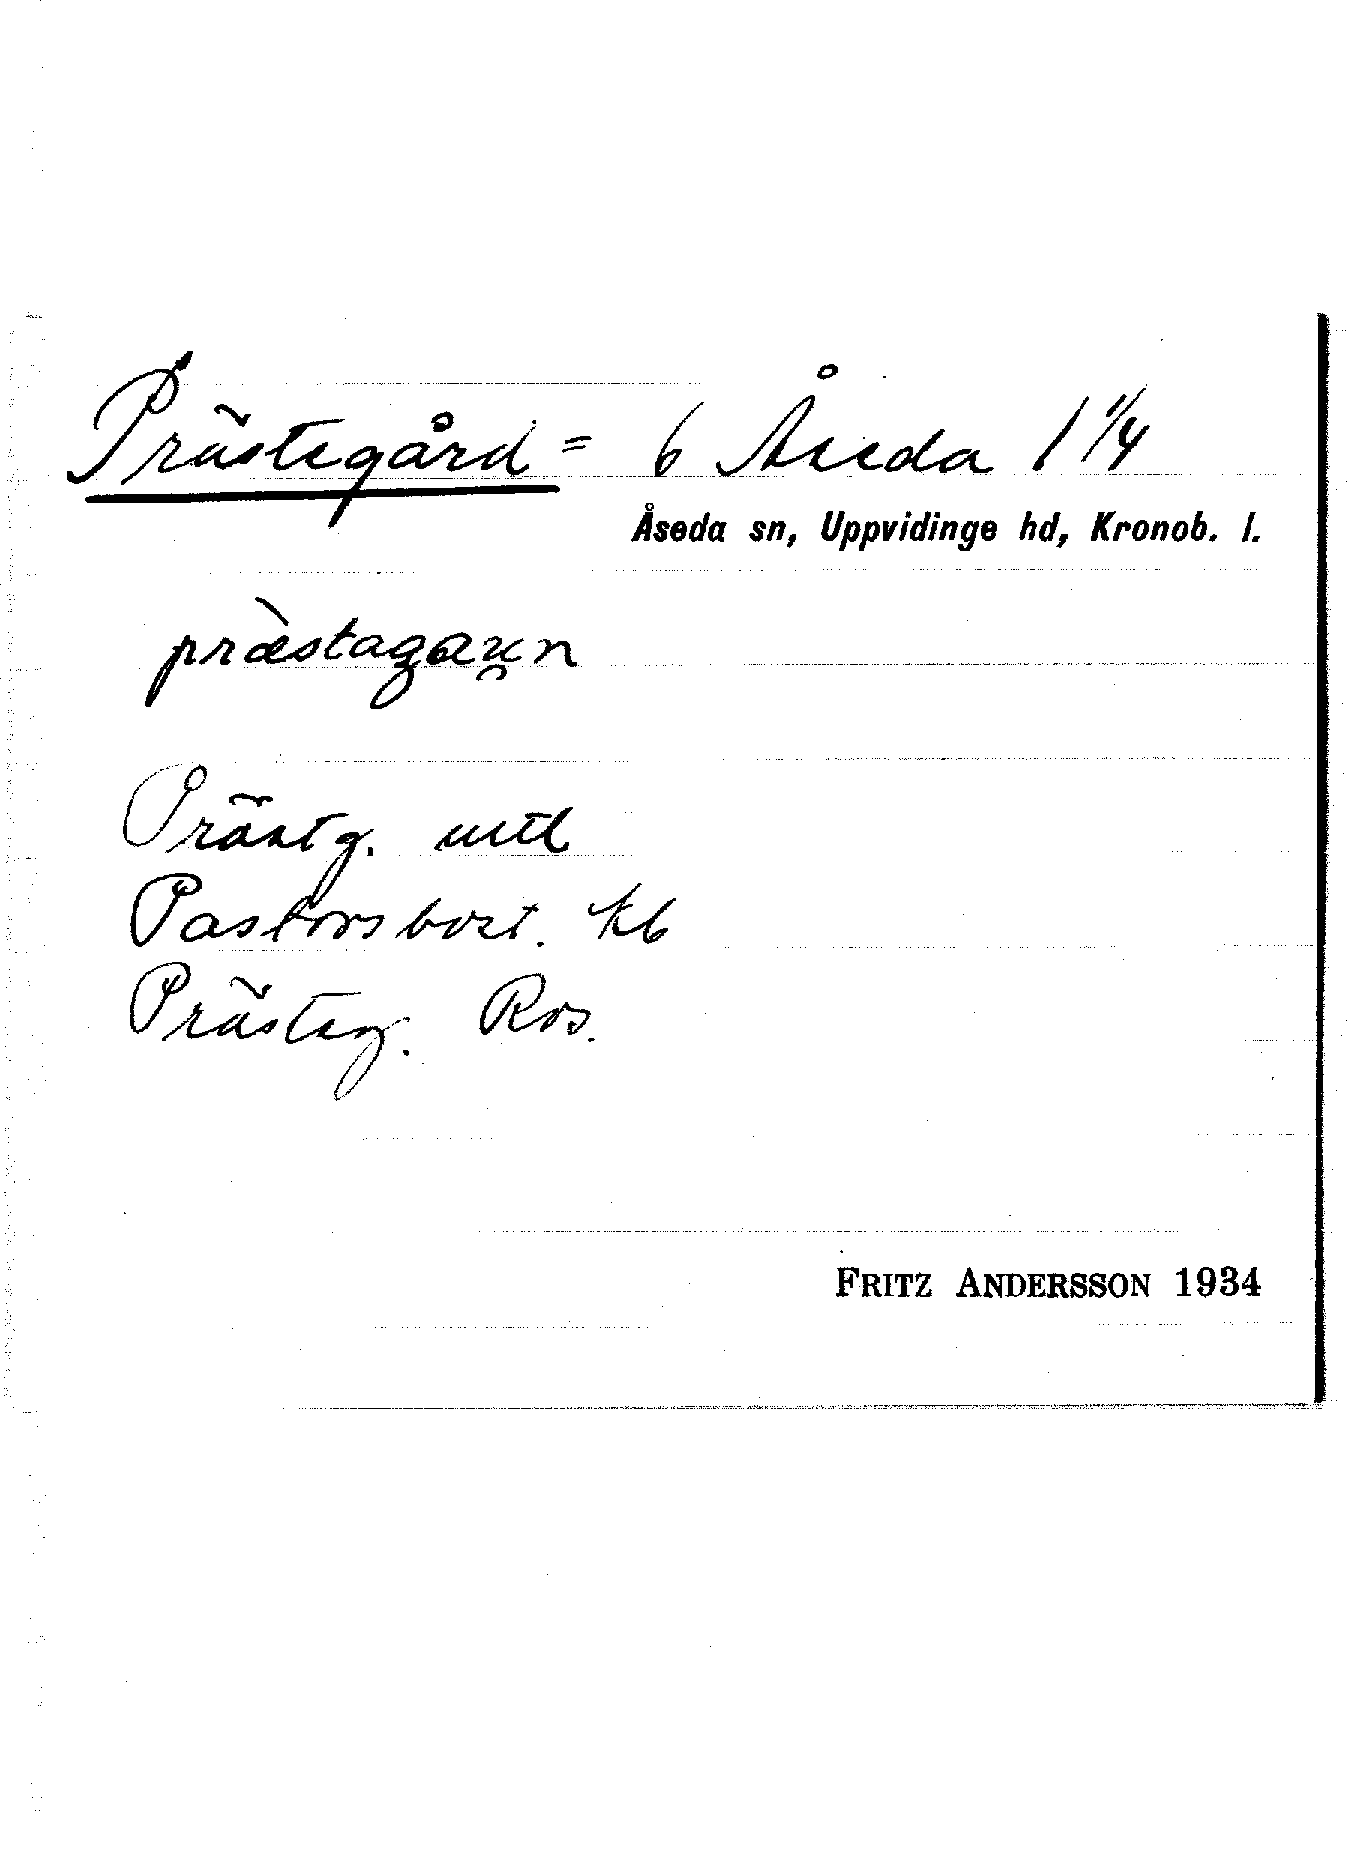 Prästegård = 6 Åseda 1 1/4
Åseda sn, Uppvidinge hd, Kronob. l.
præ̀stagau̯n
Prästg. mtl
Pastorsbost. kb
Prästeg. Ros.
FRITZ ANDERSSON 1934